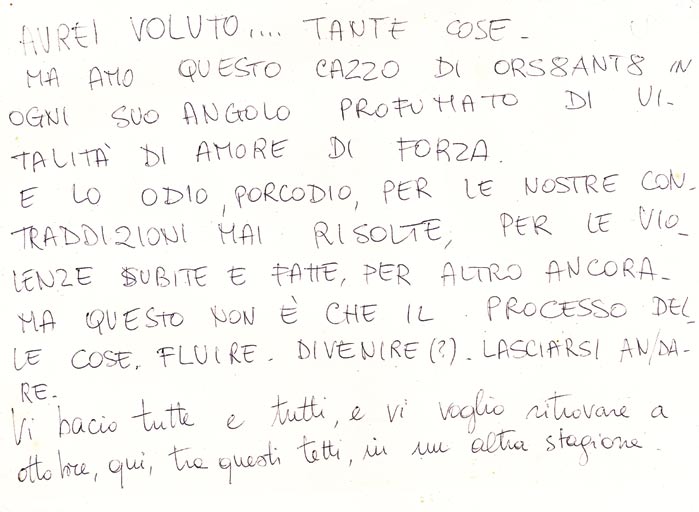 AVREI VOLUTO.... TANTE COSE-
MA AMO QUESTO CAZZO DI ORS8ANT8 IN
OGNI SUO ANGOLO PROFUMATO DI VI-
TALITÀ DI AMORE DI FORZA.
E LO ODIO, PORCODIO, PER LE NOSTRE CON-
TRADDIZIONI MAI RISOLTE, PER LE VIO-
LENZE SUBITE E FATTE, PER ALTRO ANCORA-
MA QUESTO NON È CHE IL PROCESSO DEL
LE COSE. FLUIRE. DIVENIRE(?). LASCIARSI AN/DA-
RE-
Vi bacio tutte e tutti, e vi voglio ritrovare a
ottobre, qui, tra questi tetti, in un altra stagione.